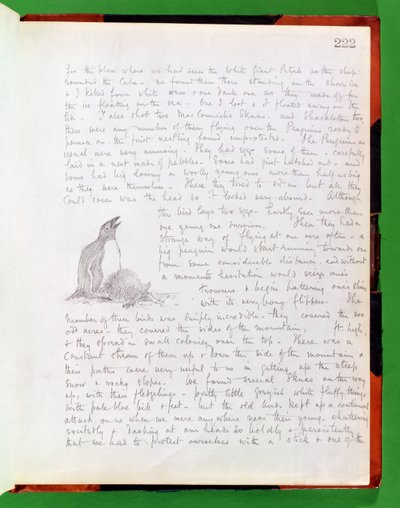 222
for the place where we had seen the White Giant Petrels as the ship
rounded the Cape. We found them there standing on the shore ice
& I killed four white ones & one dark one as they made off for
the ice floating on the sea. One I lost & it floated away on the
ice. I also shot two MacCormick's Skuas. and Shackleton two
there were any number of them flying over the Penguins ready to
pounce on the first nestling found unprotected. The Penguins as
usual were very amusing. They had eggs some of them, carefully
laid in a nest made of pebbles. Some had just hatched out. and
some had big downy or woolly young ones more than half as big
as they were themselves. These they tried to sit on but all they
could cover was the head so it looked very absurd. Although
this bird lays two eggs. hardly ever more than
one young one survives. Then they had a
strange way of flying at one very often. a
big penguin would start running towards one
from some considerable distance, and without
a moments hesitation would seize one's
trousers & begin battering one's shins
with its very bony flipper. The
number of these birds was simply incredible. they covered the
odd acres. they covered the sides of the mountain, ft. high,
& they spread in small colonies over the top. There was a
constant stream of them up & down the side of the mountain &
their paths were very useful to us in getting up the steep
snow & rocky slopes. We found several Skuas on the way
up, with their fledgelings. pretty little greyish white fluffy things
with pale blue bill & feet. but the old birds kept up a continued
attack on us when we were anywhere near their young, chattering
excitedly & dashing at our heads so boldly & persistently
that we had to protect ourselves with a stick & one of them